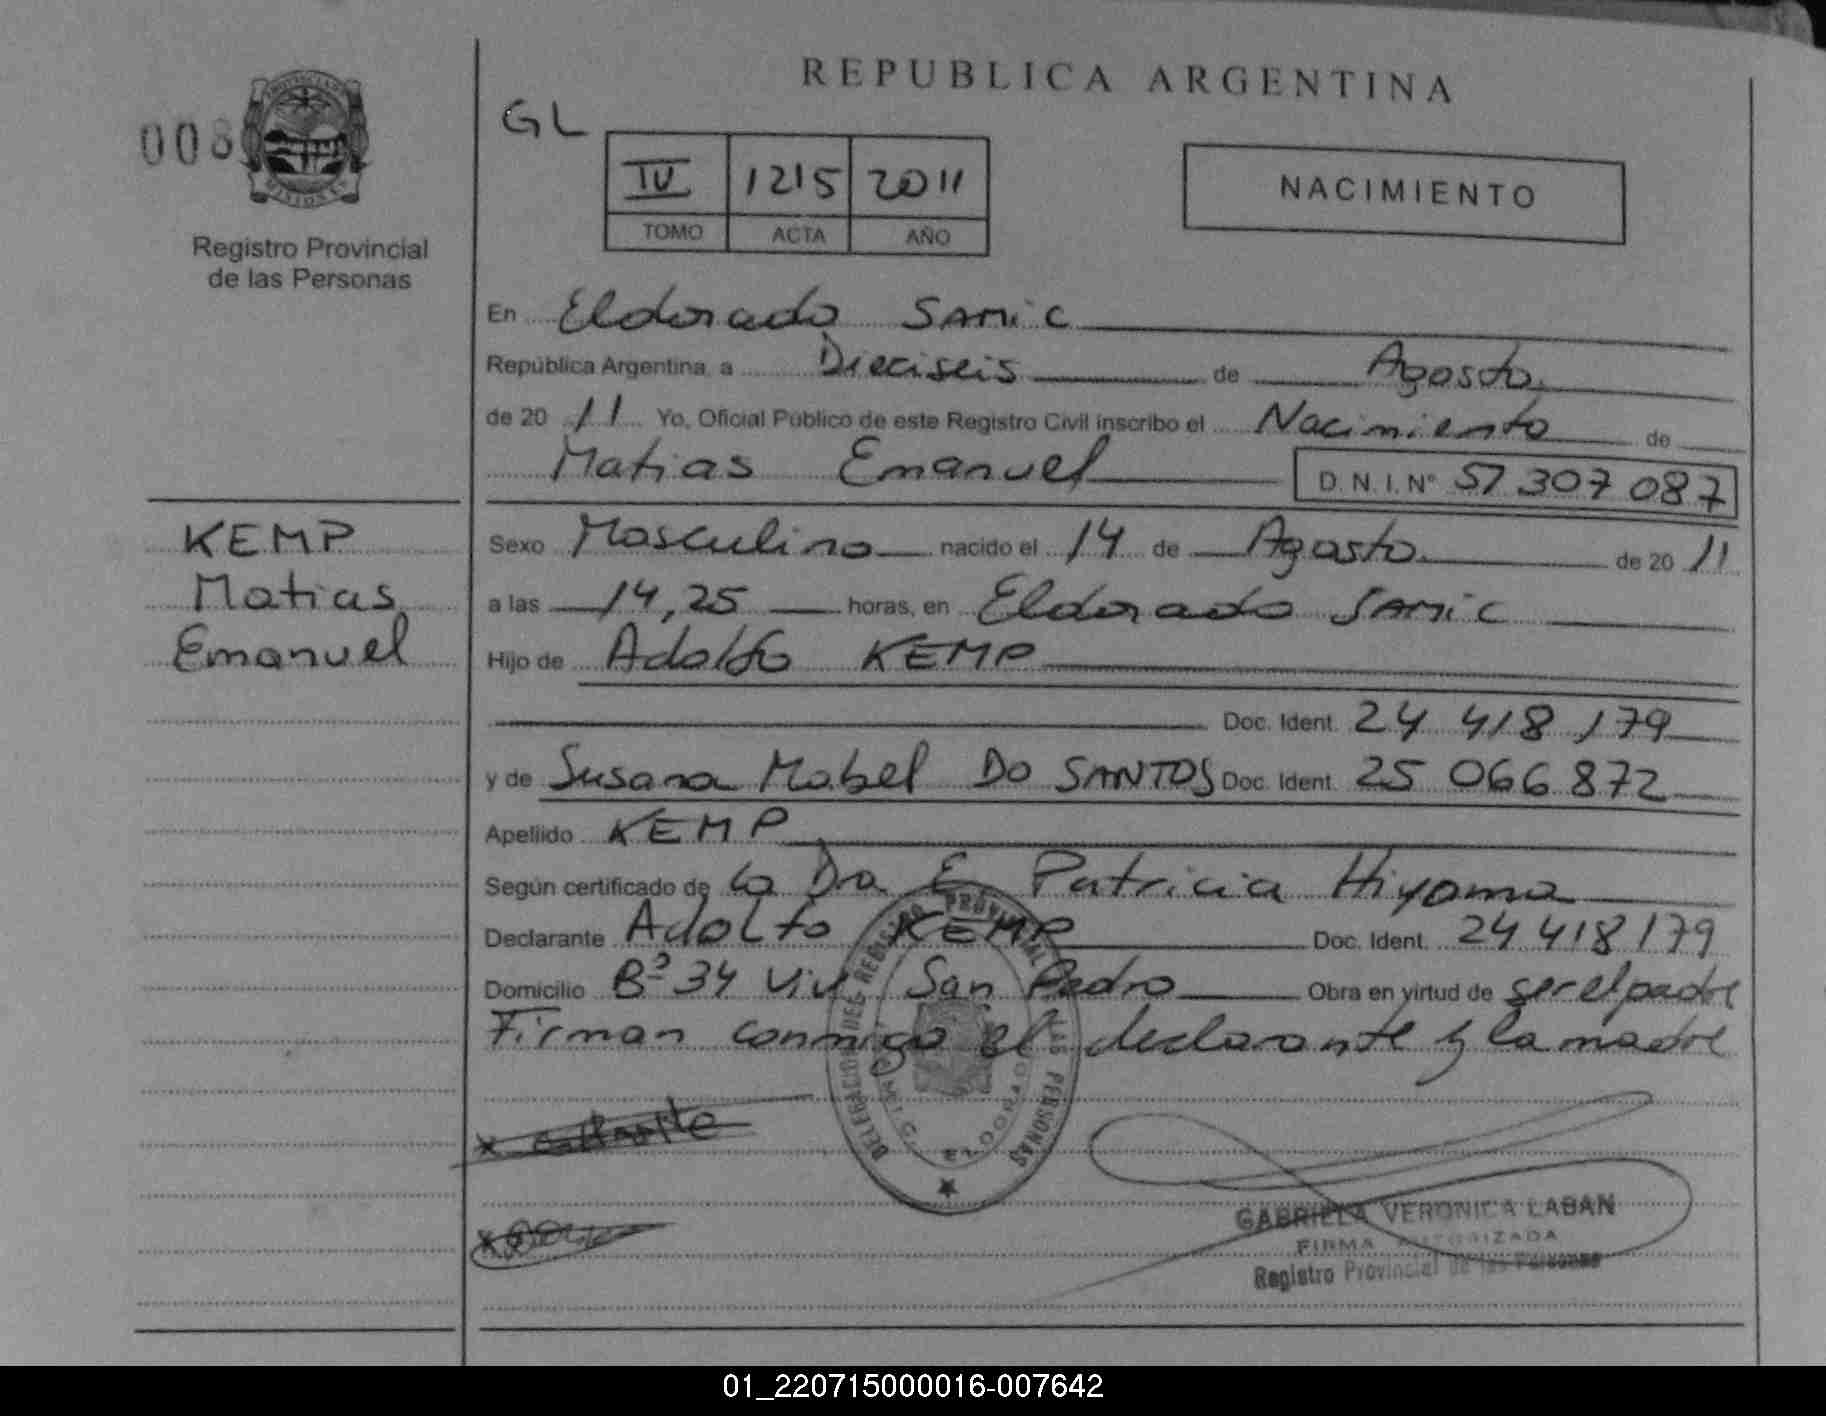 REPUBLICA ARGENTINA
008
PROVINCIA DE MISIONES
Registro Provincial
de las Personas
GL
IV 1215 2011
TOMO ACTA AÑO
NACIMIENTO
En Eldorado SAMIC
República Argentina, a Dieciseis de Agosto
de 20 11 Yo, Oficial Público de este Registro Civil inscribo el Nacimiento de
Matias Emanuel D.N.I. N° 51 307 087
KEMP
Matias
Emanuel
Sexo Masculino nacido el 14 de Agosto de 20 11
a las 14,25 horas, en Eldorado SAMIC
Hijo de Adolfo KEMP
Doc. Ident. 24 418 179
y de Susana Mabel DO SANTOS Doc. Ident. 25 066 872
Apellido KEMP
Según certificado de la Dra E. Patricia Hiyoma
Declarante Adolfo KEMP Doc. Ident. 24 418 179
Domicilio Bº 34 Viv. San Pedro Obra en virtud de ser el padre
Firman conmigo el declarante y la madre
DELEGACION DEL REGISTRO PROVINCIAL DE LAS PERSONAS
ELDORADO
GABRIELA VERONICA LABAN
FIRMA AUTORIZADA
Registro Provincial de las Personas
01_220715000016-007642